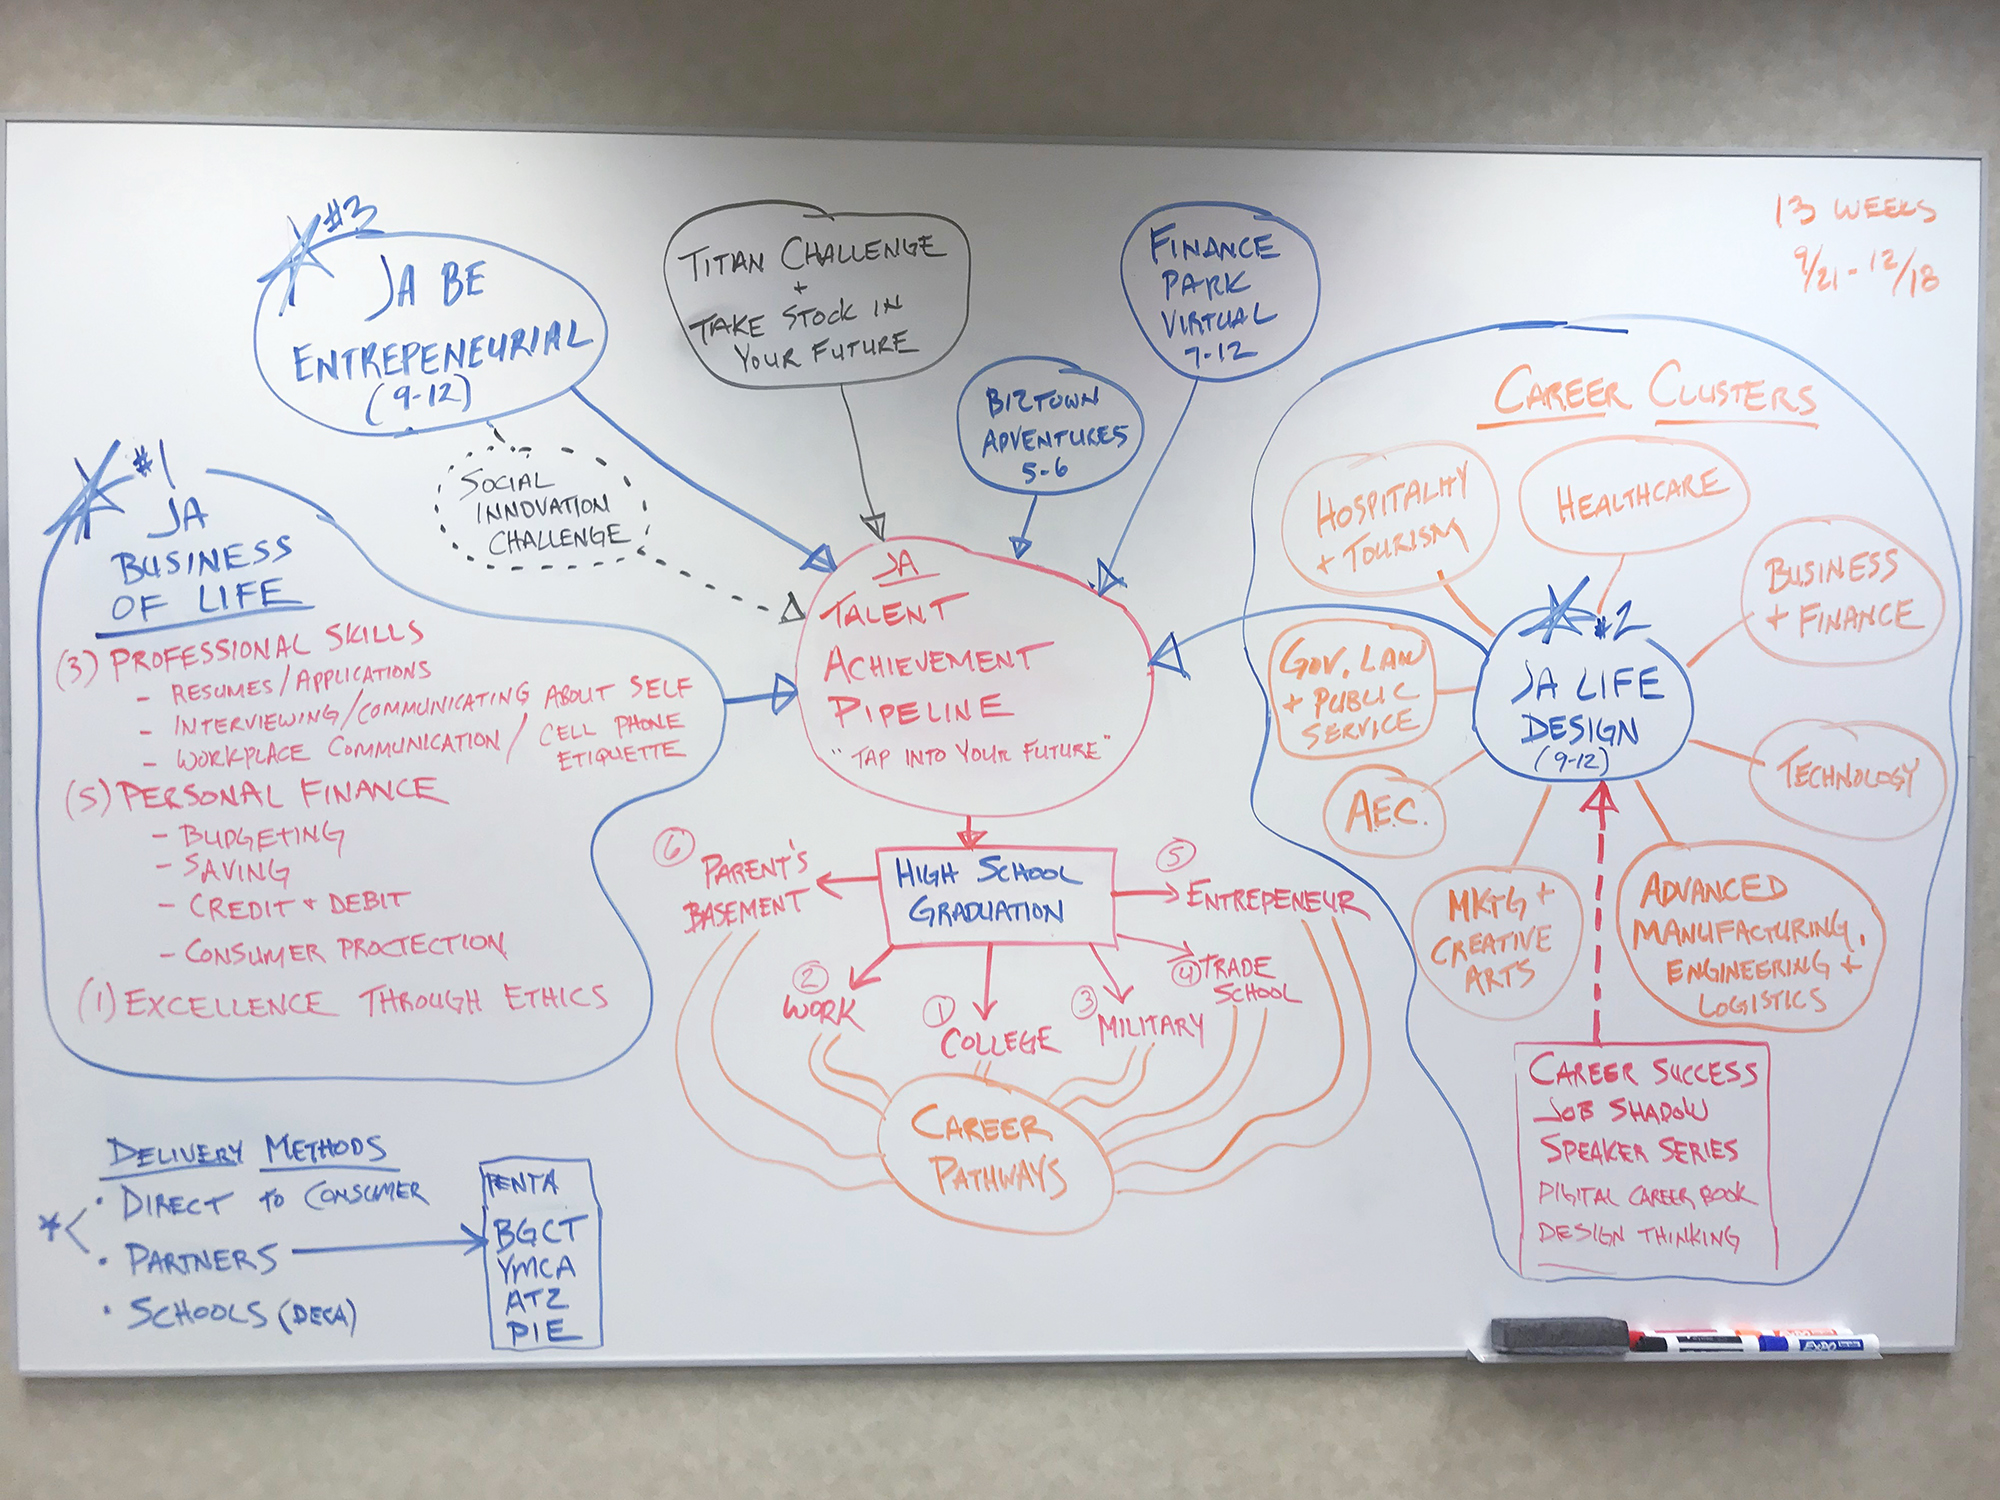 #3
JA BE
ENTREPENEURIAL
(9-12)
TITAN CHALLENGE
+
TAKE STOCK IN
YOUR FUTURE
FINANCE
PARK
VIRTUAL
7-12
13 WEEKS
9/21 - 12/18
BIZTOWN
ADVENTURES
5-6
SOCIAL
INNOVATION
CHALLENGE
#1
JA
BUSINESS
OF LIFE
(3) PROFESSIONAL SKILLS
- RESUMES/APPLICATIONS
- INTERVIEWING/COMMUNICATING ABOUT SELF
- WORKPLACE COMMUNICATION/CELL PHONE
ETIQUETTE
(5) PERSONAL FINANCE
- BUDGETING
- SAVING
- CREDIT + DEBIT
- CONSUMER PROCTECTION
(1) EXCELLENCE THROUGH ETHICS
JA
TALENT
ACHIEVEMENT
PIPELINE
"TAP INTO YOUR FUTURE"
HIGH SCHOOL
GRADUATION
6
PARENT'S
BASEMENT
2
WORK
1
COLLEGE
3
MILITARY
4 TRADE
SCHOOL
5
ENTREPENEUR
CAREER
PATHWAYS
CAREER CLUSTERS
HOSPITALITY
+ TOURISM
HEALTHCARE
BUSINESS
+ FINANCE
GOV, LAW
+ PUBLIC
SERVICE
#2
JA LIFE
DESIGN
(9-12)
TECHNOLOGY
A.E.C.
MKTG +
CREATIVE
ARTS
ADVANCED
MANUFACTURING,
ENGINEERING +
LOGISTICS
CAREER SUCCESS
JOB SHADOW
SPEAKER SERIES
DIGITAL CAREER BOOK
DESIGN THINKING
DELIVERY METHODS
· DIRECT TO CONSUMER
· PARTNERS
· SCHOOLS (DECA)
PENTA
BGCT
YMCA
ATZ
PIE